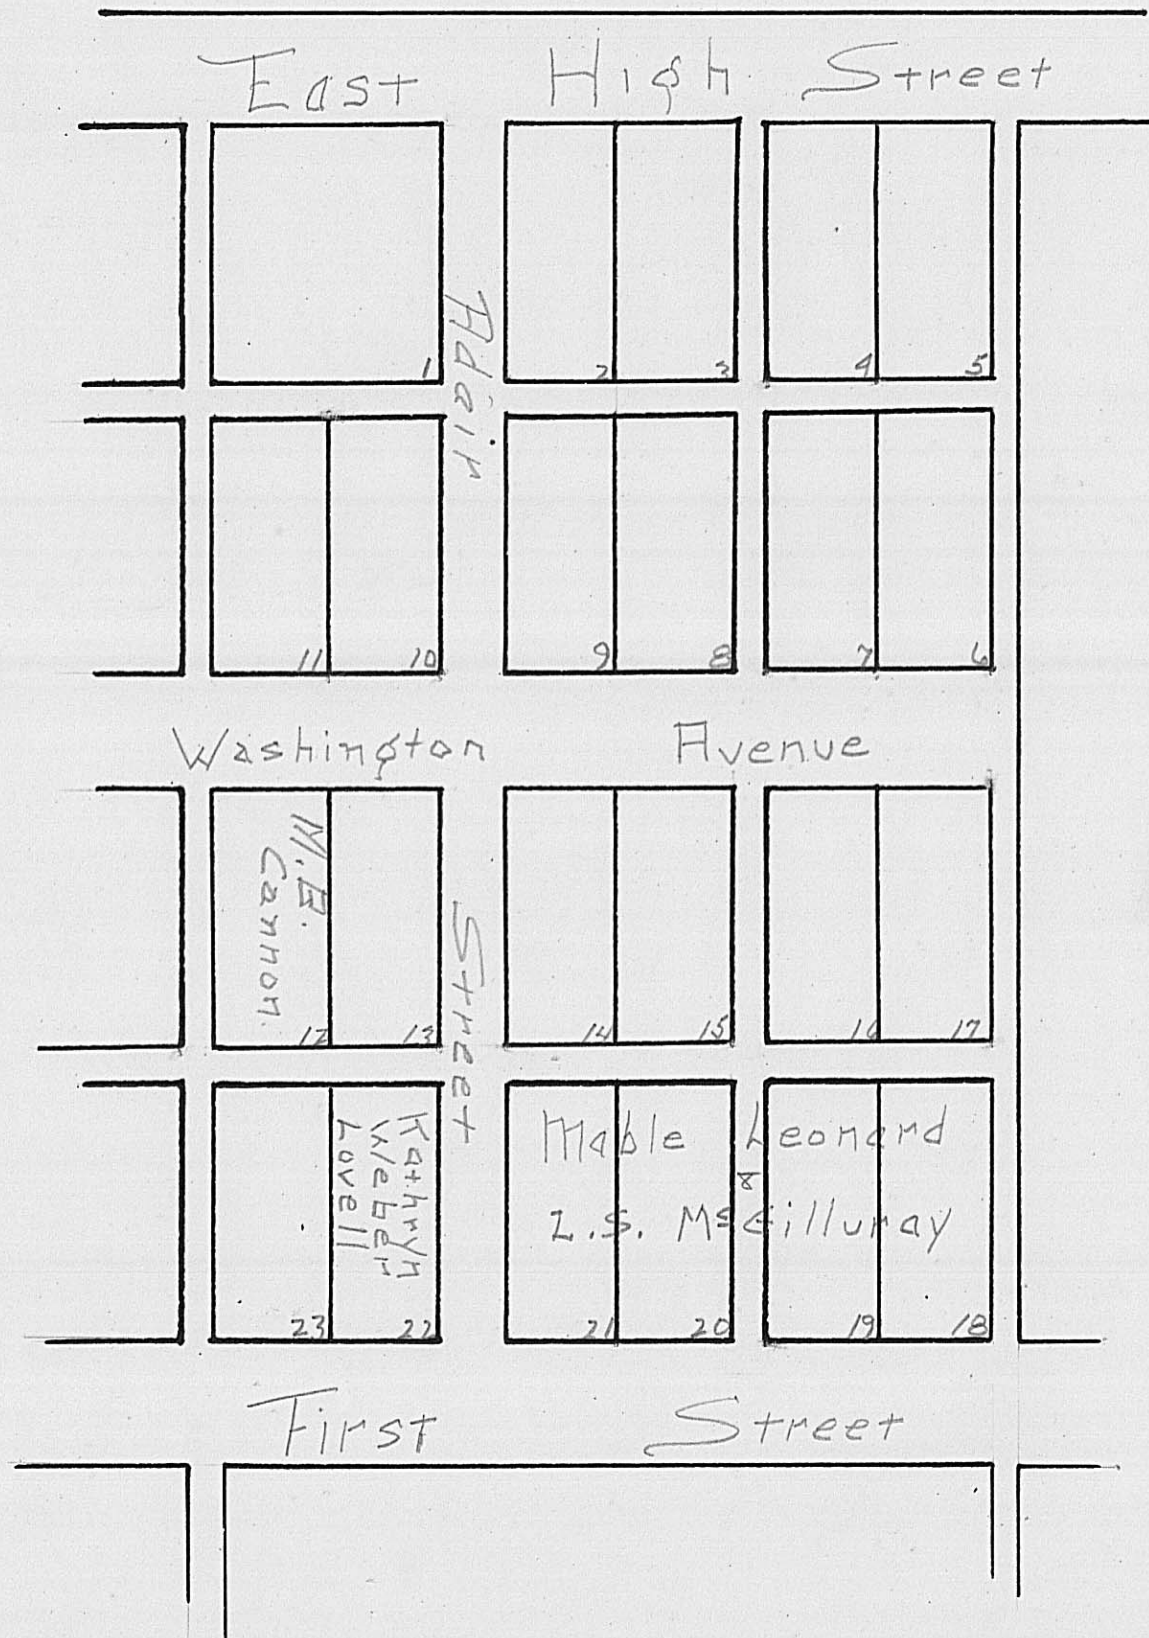 East High Street
1 2 3 4 5
Adair
11 10 9 8 7 6
Washington Avenue
M.B.
Cannon
Street
12 13 14 15 16 17
Kathryn
Weber
Lovell
Mable Leonard
&
L.S. McGilluray
23 22 21 20 19 18
First Street